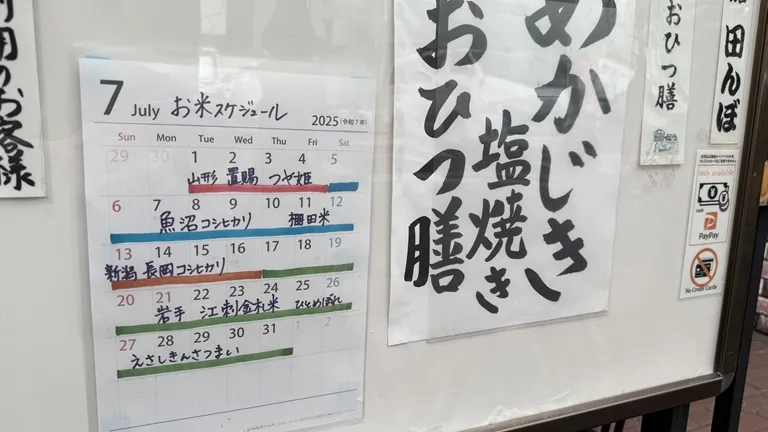 用のお客様
7 July お米スケジュール 2025(令和7年)
Sun Mon Tue Wed Thu Fri Sat
29 30 1 2 3 4 5
山形 置賜 つや姫
6 7 8 9 10 11 12
魚沼コシヒカリ 棚田米
13 14 15 16 17 18 19
新潟 長岡コシヒカリ
20 21 22 23 24 25 26
岩手 江刺金札米 ひとめぼれ
27 28 29 30 31 1 2
えさしきんさつまい
めかじき
塩焼き
おひつ膳
おひつ膳
田んぼ
only available
cash
PayPay
No Credit Cards